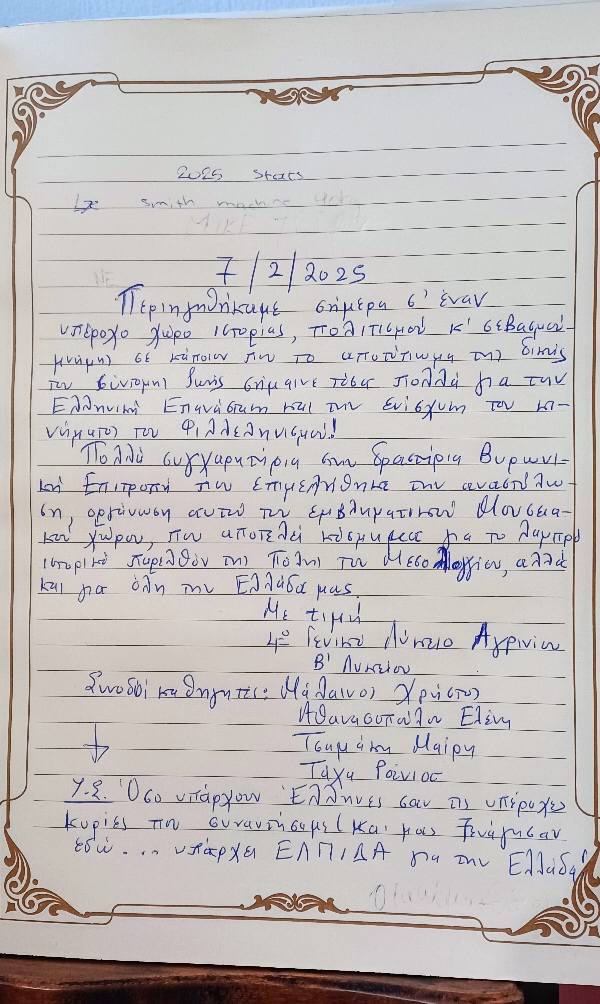 2025 stats
smith machine
7/2/2025
Περιηγηθήκαμε σήμερα σ' έναν
υπέροχο χώρο ιστορίας, πολιτισμού κ' σεβασμού-
μνήμης σε κάποιον που το αποτύπωμα της δικής
του σύντομης ζωής σήμαινε τόσα πολλά για την
Ελληνική Επανάσταση και την ενίσχυση του κι-
νήματος του Φιλλεληνισμού!
Πολλά συγχαρητήρια στην δραστήρια Βυρωνι-
κή Επιτροπή που επιμελήθηκε την αναστύλω-
ση, οργάνωση αυτού του εμβληματικού Μουσεια-
κού χώρου, που αποτελεί κόσμημα για το λαμπρό
ιστορικό παρελθόν της Πόλης του Μεσολογγίου, αλλά
και για όλη την Ελλάδα μας.
Με τιμή
4ο Γενικό Λύκειο Αγρινίου
Β' Λυκείου
Συνοδοί καθηγητές: Μάλαινος Χρήστος
Αθανασοπούλου Ελένη
Τσαμάκη Μαίρη
Τάχα
Υ.Σ. Όσο υπάρχουν Έλληνες σαν τις υπέροχες
κυρίες που συναντήσαμε (και μας ξενάγησαν
εδώ... υπάρχει ΕΛΠΙΔΑ για την Ελλάδα!